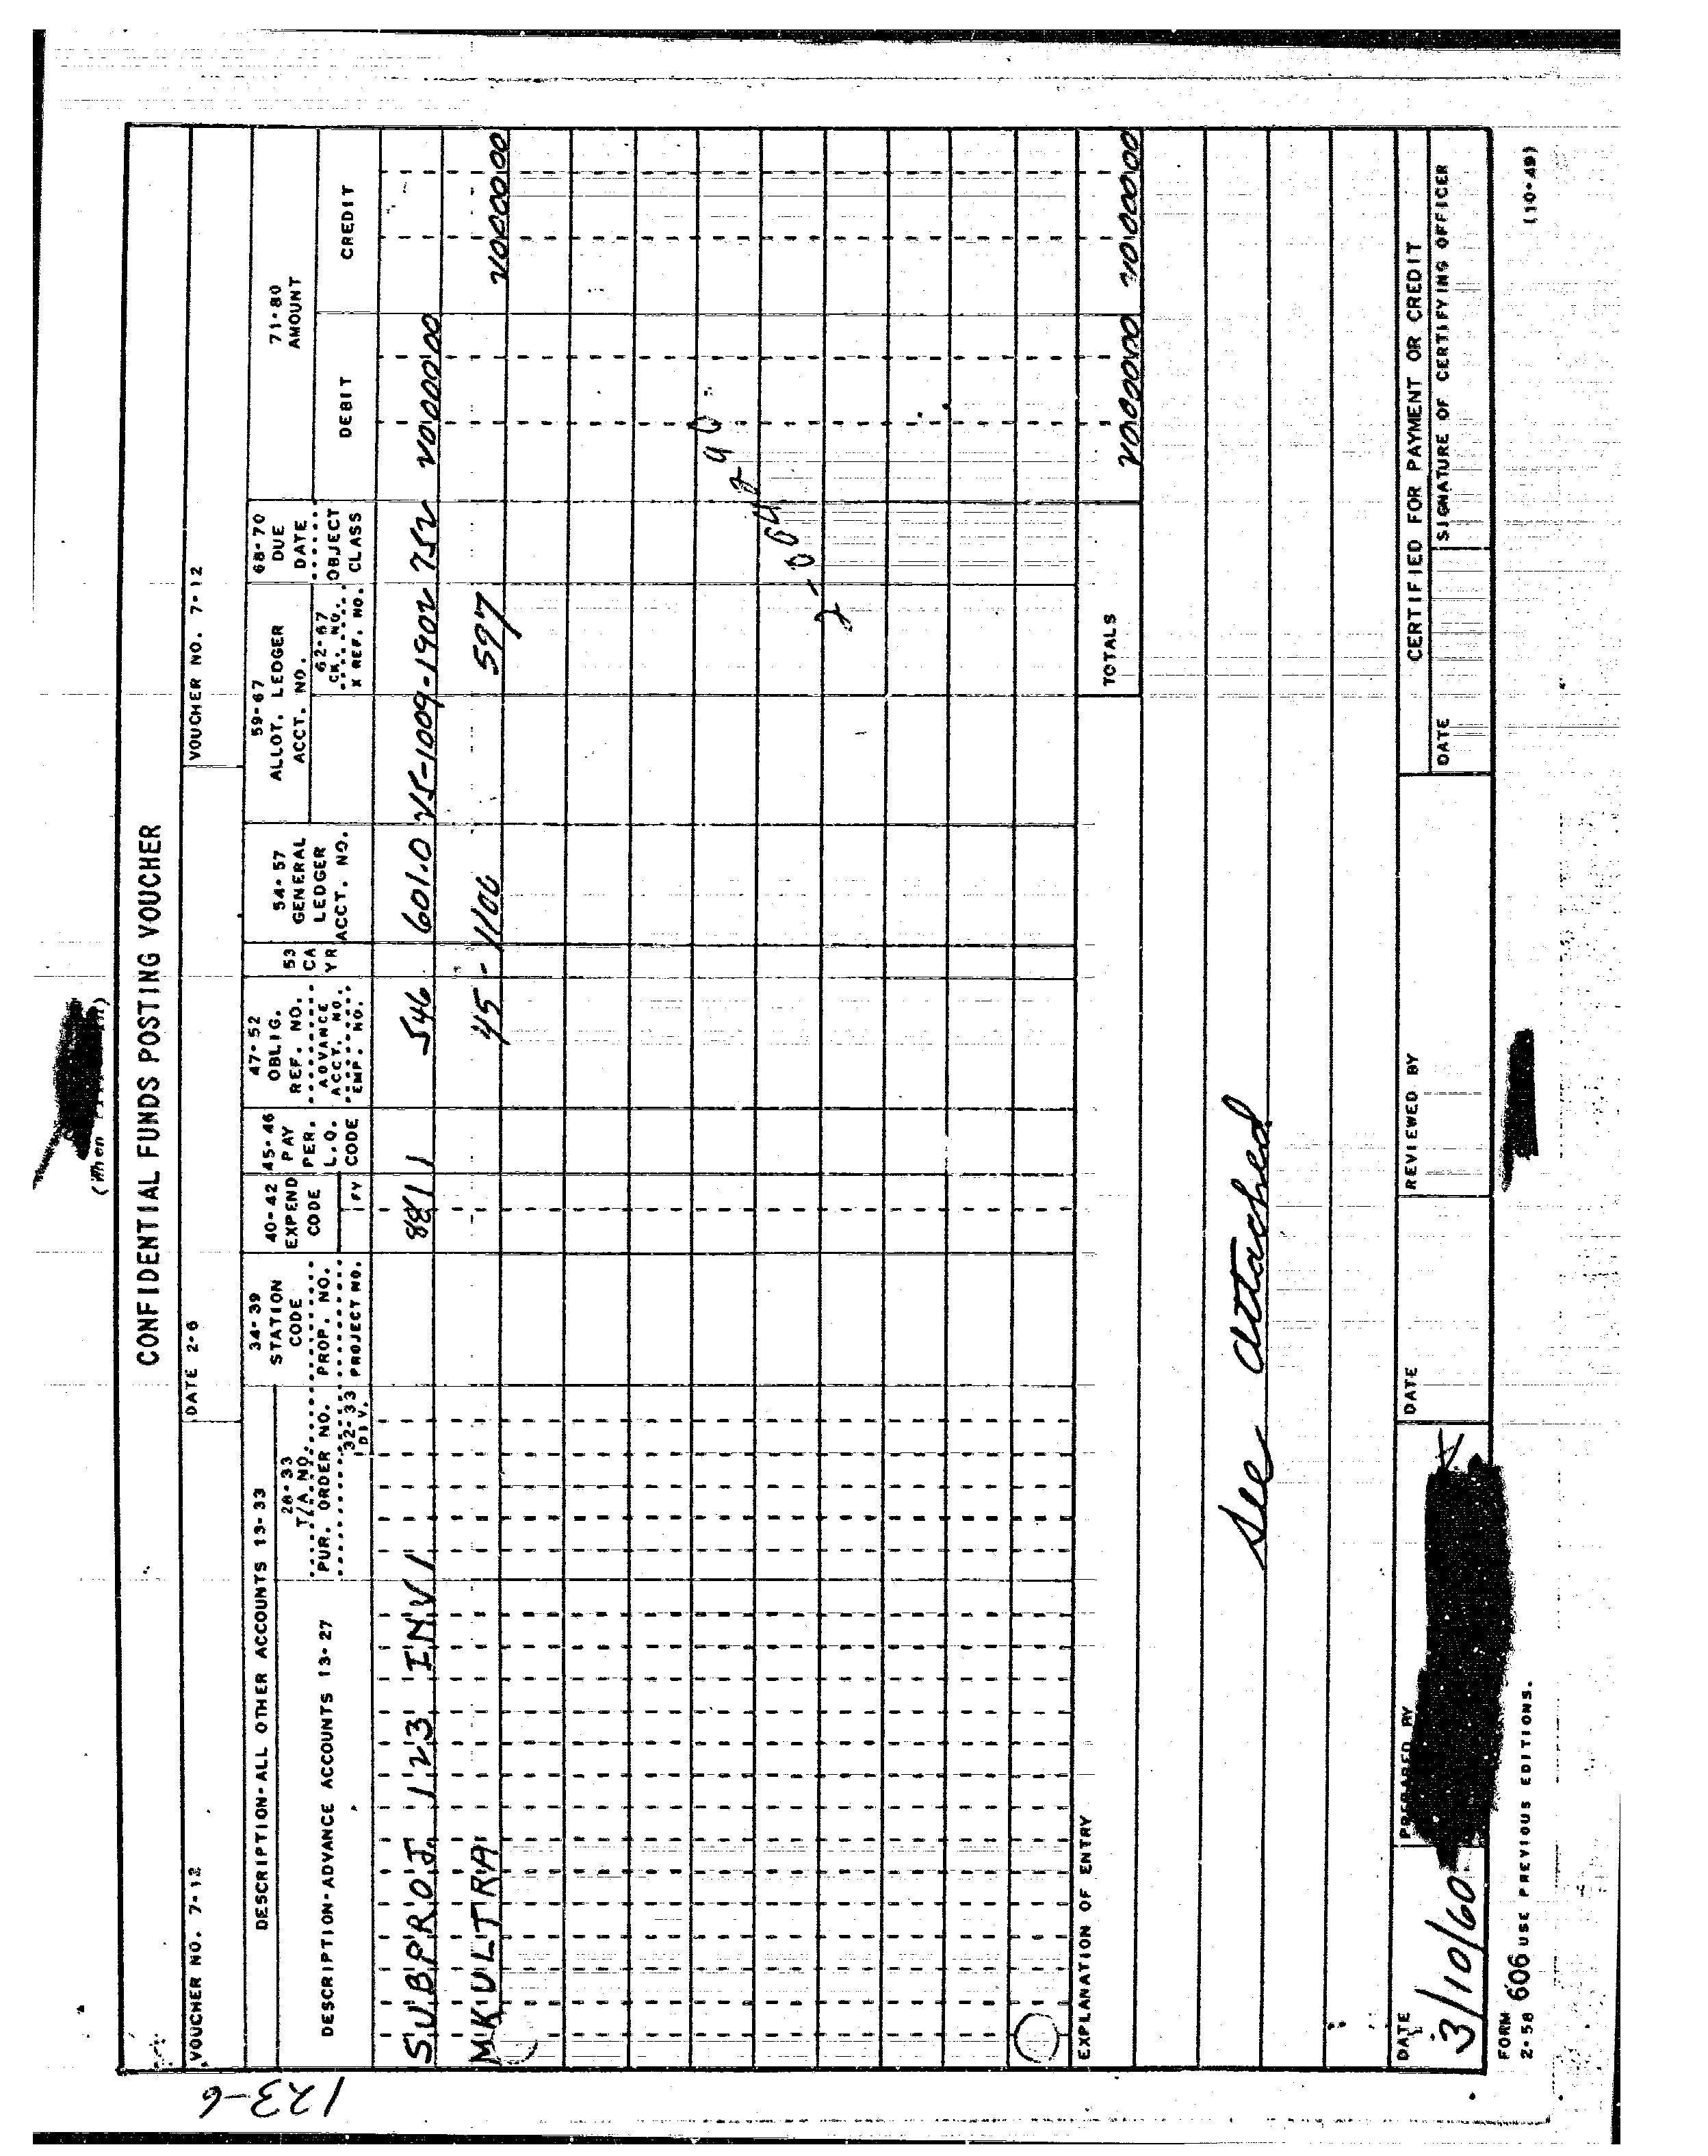 (When
CONFIDENTIAL FUNDS POSTING VOUCHER
VOUCHER NO. 7-12
DATE 2-6
VOUCHER NO. 7-12
DESCRIPTION-ALL OTHER ACCOUNTS 13-33
DESCRIPTION-ADVANCE ACCOUNTS 13-27
28-33
T/A NO.
PUR. ORDER NO.
32-33
DIV.
34-39
STATION
CODE
PROP. NO.
PROJECT NO.
40-42
EXPEND
CODE
FY
45-46
PAY
PER.
L.Q.
CODE
47-52
OBLIG.
REF. NO.
ADVANCE
ACCT. NO.
EMP. NO.
53
CA
YR
54-57
GENERAL
LEDGER
ACCT. NO.
59-67
ALLOT. LEDGER
ACCT. NO.
62-67
CK. NO.
X REF. NO.
68-70
DUE
DATE
OBJECT
CLASS
71-80
AMOUNT
DEBIT
CREDIT
SUBPROJ. 123 INV 1 881 1 546 601.0 25-1009-1902 752
MKULTRA 45-1100 597
2-064240
TOTALS
EXPLANATION OF ENTRY
See attached
DATE
3/10/60
PREPARED BY
DATE
REVIEWED BY
CERTIFIED FOR PAYMENT OR CREDIT
DATE
SIGNATURE OF CERTIFYING OFFICER
FORM
2-58 606 USE PREVIOUS EDITIONS.
(10-49)
123-6